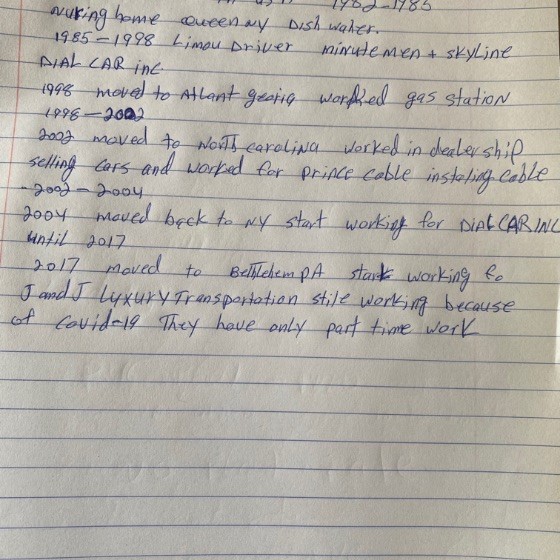 1982-1985
nuking home Queen NY Dish waher.
1985-1998 Limou Driver minute men + skyline
DIAL CAR inc
1998 moved to Atlant georig worked gas station
1998-2002
2002 moved to North carolina worked in dealership
selling cars and worked for prince cable instaling cable
-2002-2004
2004 moved back to NY start working for DIAL CAR INC
until 2017
2017 moved to Bethlehem PA start working fo
J and J Lyxury Transportation stile working because
of Covid-19 They have only part time work